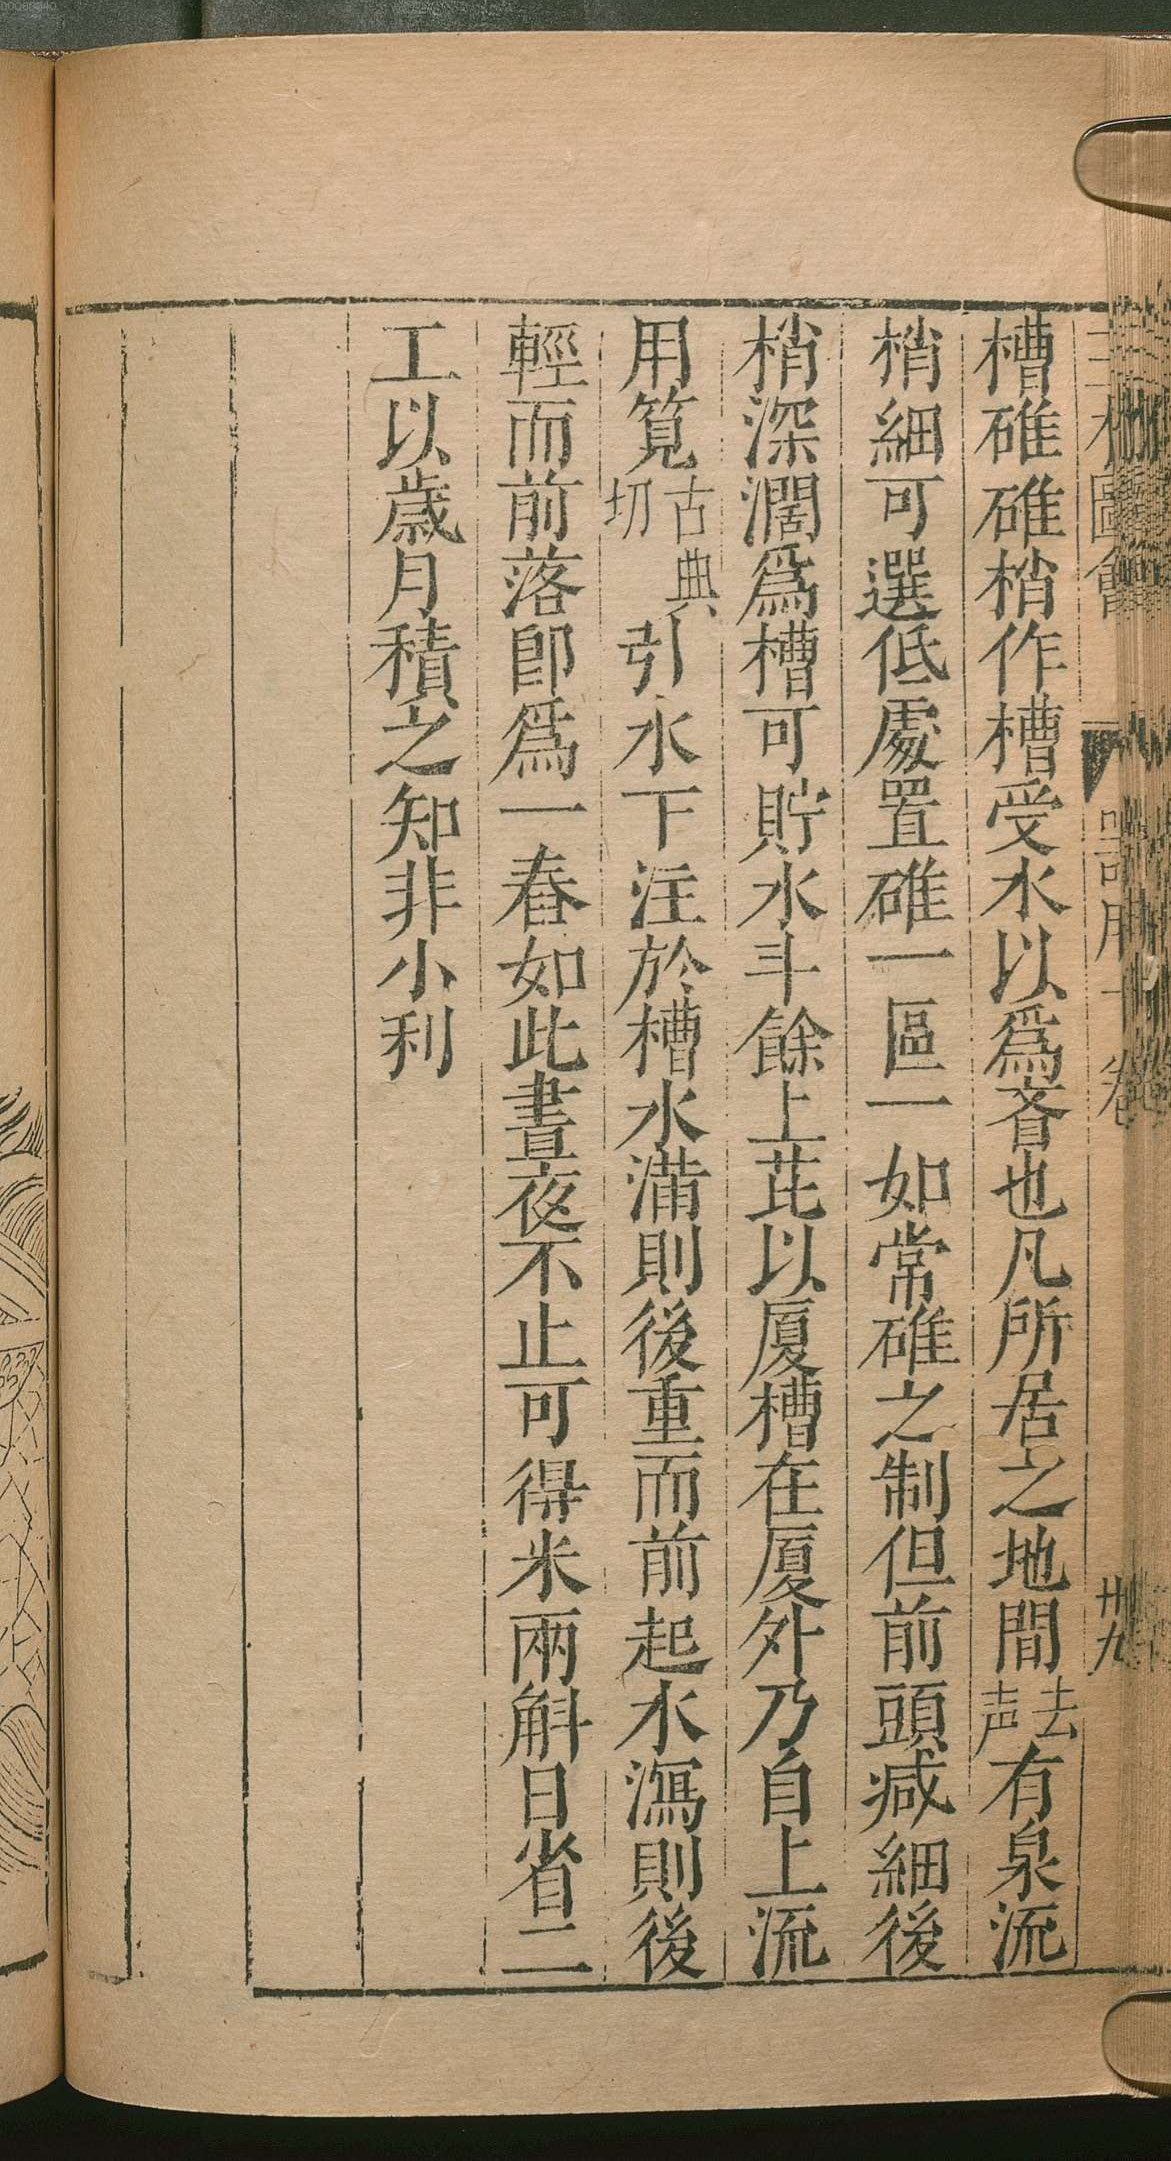 三才圖會 器用十卷 廿九
槽碓碓梢作槽受水以爲舂也凡所居之地間去声有泉流
梢細可選低處置碓一區一如常碓之制但前頭減細後
梢深濶爲槽可貯水斗餘上茈以厦槽在厦外乃自上流
用筧古典切引水下注於槽水滿則後重而前起水瀉則後
輕而前落卽爲一舂如此晝夜不止可得米兩斛日省二
工以歲月積之知非小利